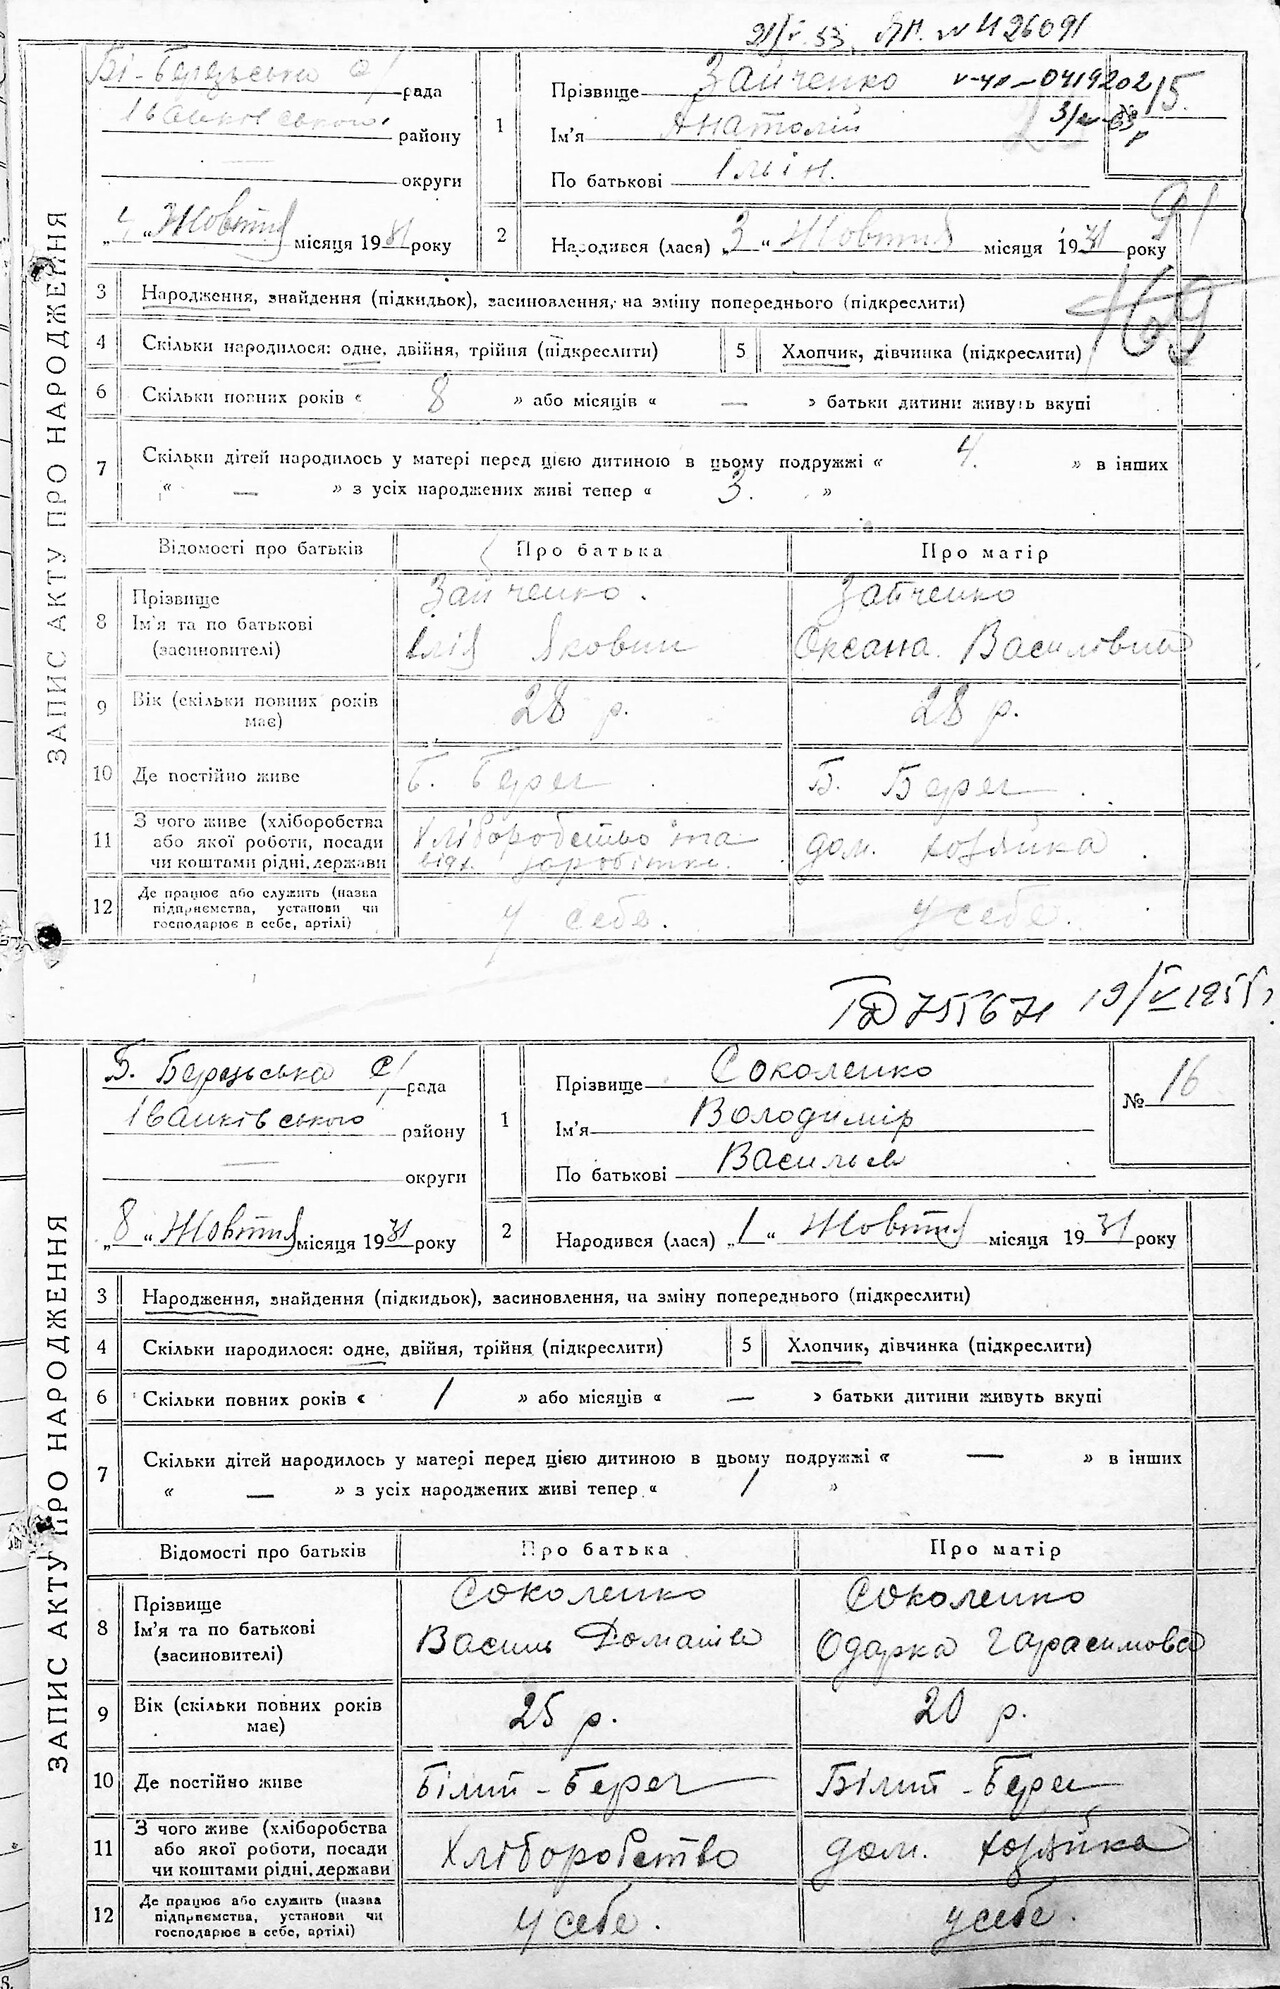 21/V.53. ЯП. № 426091
ЗАПИС АКТУ ПРО НАРОДЖЕННЯ
Бі-Березьська с/рада
Іванківського району
— округи
„4“ Жовтня місяця 1931 року
1 Прізвище Зайченко
V-ЧЯ-0419202
Ім'я Анатолій
По батькові Ілліч.
№ 15.
91
2 Народився (лася) „3“ Жовтня місяця 1931 року
3 Народження, знайдення (підкидьок), засиновлення, на зміну попереднього (підкреслити)
169
4 Скільки народилося: одне, двійня, трійня (підкреслити) 5 Хлопчик, дівчинка (підкреслити)
6 Скільки повних років « 8 » або місяців « — » батьки дитини живуть вкупі
7 Скільки дітей народилось у матері перед цією дитиною в цьому подружжі « 4. » в інших
« — » з усіх народжених живі тепер « 3. »
Відомості про батьків Про батька Про матір
8 Прізвище Ім'я та по батькові (засиновителі)
Зайченко. Зайченко
Ілія Якович Оксана Василівна
9 Вік (скільки повних років має) 28 р. 28 р.
10 Де постійно живе Б. Берег Б. Берег
11 З чого живе (хліборобства або якої роботи, посади чи коштами рідні, держави
Хліборобство та відх. заробітки. дом. хозяйка
12 Де працює або служить (назва підприємства, установи чи господарює в себе, артілі)
у себе. у себе.
755671 19/V 1955 г.
ЗАПИС АКТУ ПРО НАРОДЖЕННЯ
Б. Берецьська с/рада
Іванківського району
— округи
„8“ Жовтня місяця 1931 року
1 Прізвище Соколенко
Ім'я Володимір
По батькові Васильев
№ 16
2 Народився (лася) „1“ Жовтня місяця 1931 року
3 Народження, знайдення (підкидьок), засиновлення, на зміну попереднього (підкреслити)
4 Скільки народилося: одне, двійня, трійня (підкреслити) 5 Хлопчик, дівчинка (підкреслити)
6 Скільки повних років « 1 » або місяців « — » батьки дитини живуть вкупі
7 Скільки дітей народилось у матері перед цією дитиною в цьому подружжі « — » в інших
« — » з усіх народжених живі тепер « 1 »
Відомості про батьків Про батька Про матір
8 Прізвище Ім'я та по батькові (засиновителі)
Соколенко Соколенко
Василь Одарка Гарасимовна
9 Вік (скільки повних років має) 25 р. 20 р.
10 Де постійно живе Білий-Берег Білий-Берег
11 З чого живе (хліборобства або якої роботи, посади чи коштами рідні, держави
Хліборобство дом. хозяйка
12 Де працює або служить (назва підприємства, установи чи господарює в себе, артілі)
у себе. у себе.